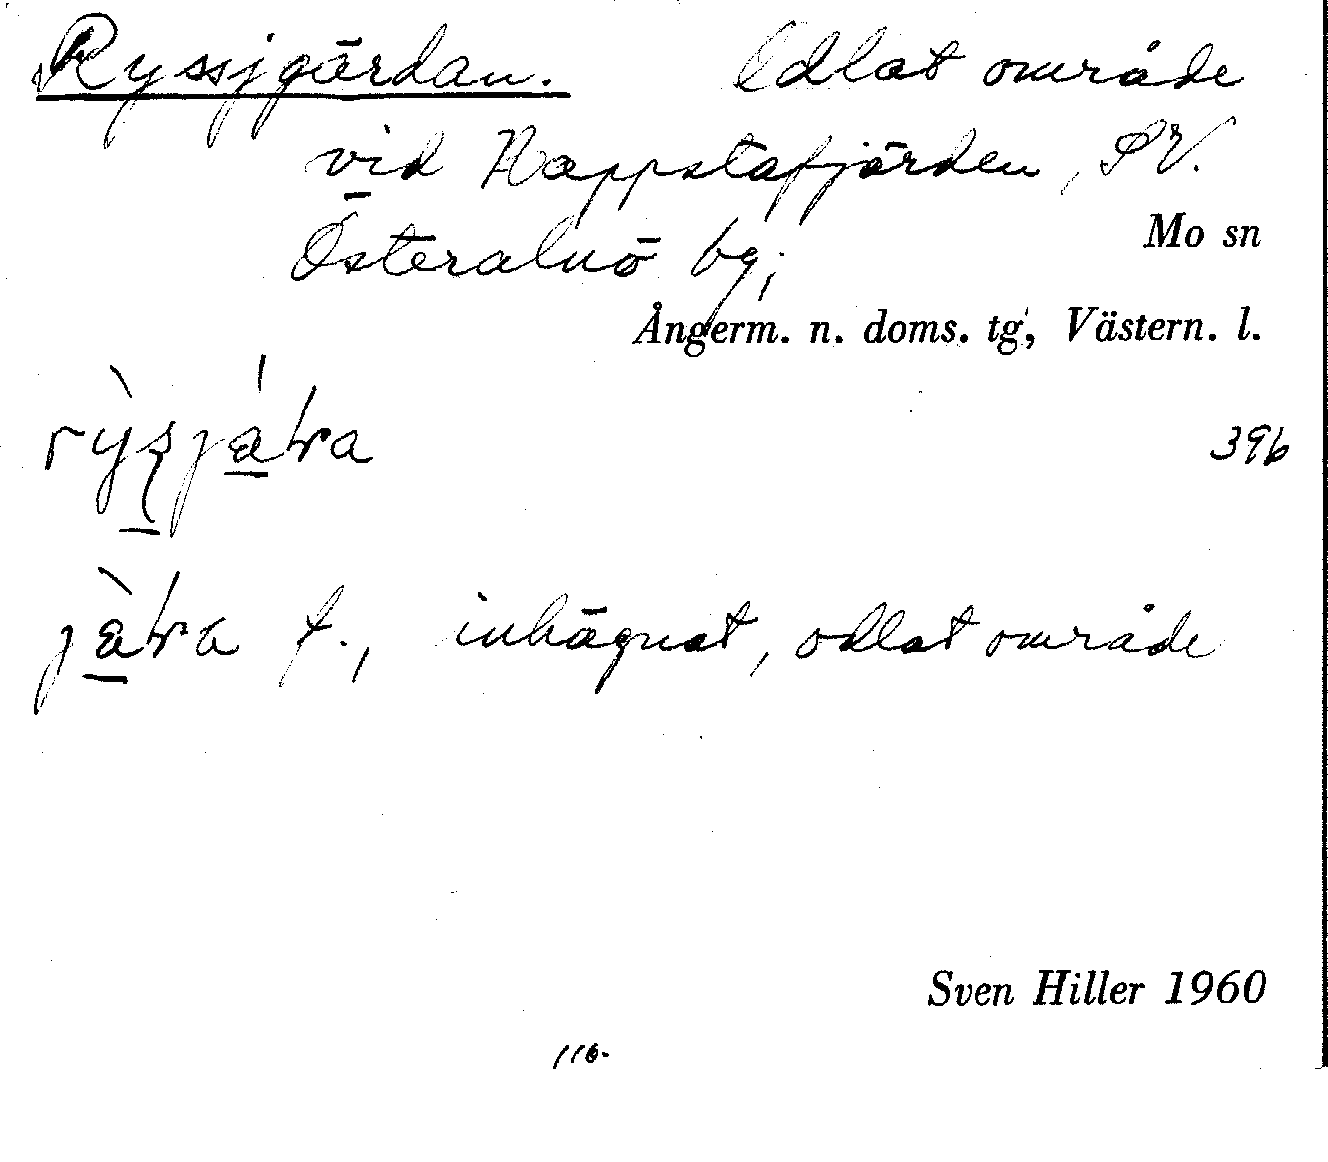 Ryssjgärdan. Odlat område
vid Happstafjärden, SV.
Österalnö bg;
Mo sn
Ångerm. n. doms. tg, Västern. l.
396
f., inhägnat, odlat område
Sven Hiller 1960
116.